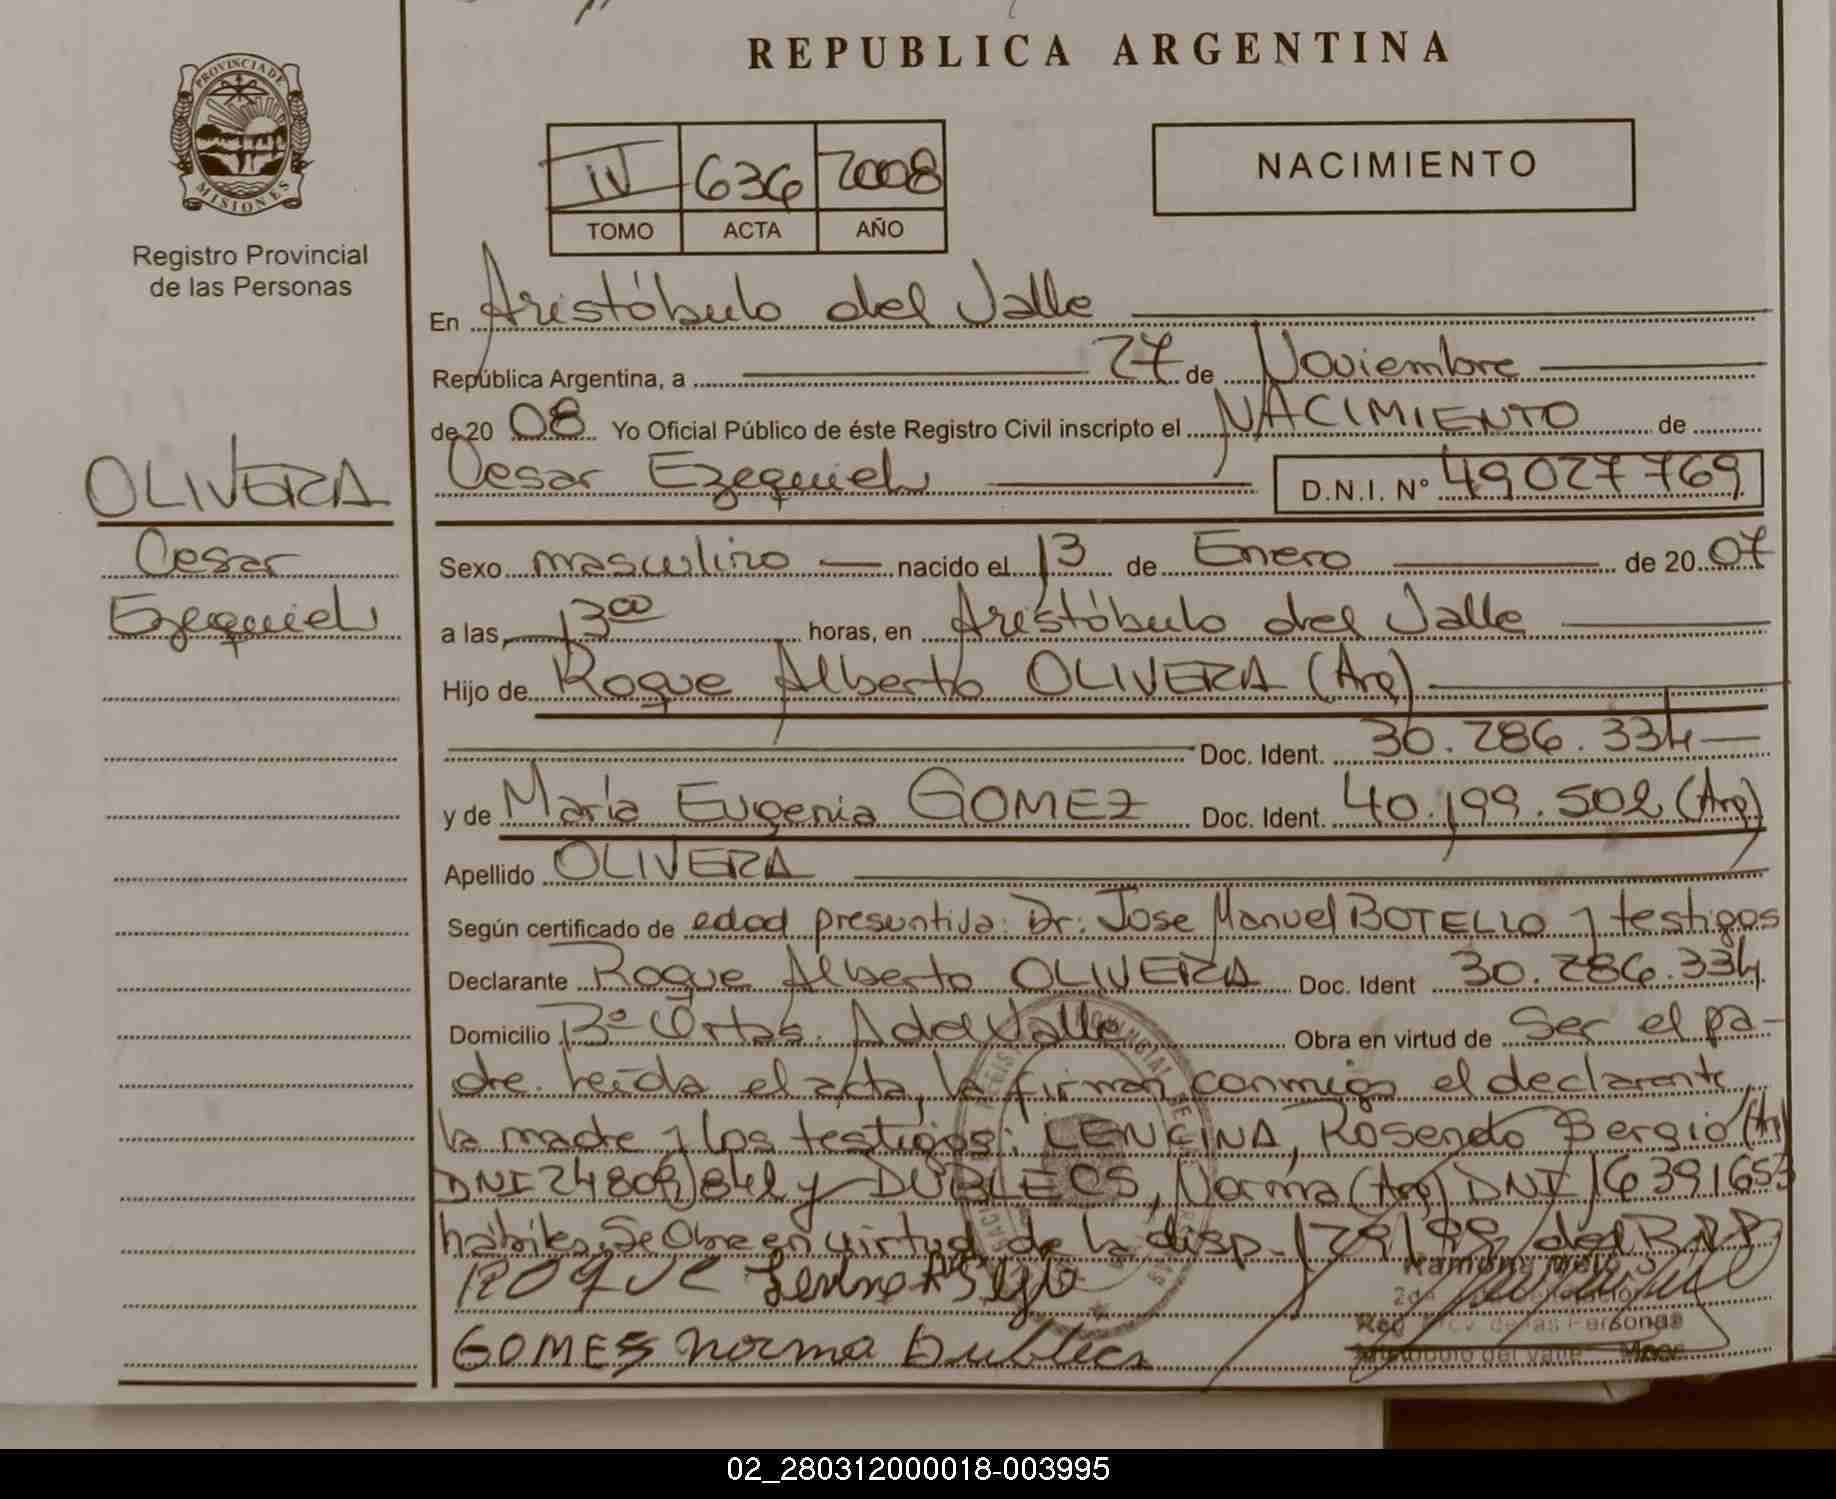 REPUBLICA ARGENTINA
PROVINCIA DE MISIONES
Registro Provincial
de las Personas
IV 636 2008
TOMO ACTA AÑO
NACIMIENTO
OLIVERA
Cesar
Ezequiel
En Aristóbulo del Valle
República Argentina, a 27 de Noviembre
de 20 08 Yo Oficial Público de éste Registro Civil inscripto el NACIMIENTO de
Cesar Ezequiel D.N.I. Nº 49027769
Sexo masculino nacido el 13 de Enero de 20 07
a las 13 00 horas, en Aristóbulo del Valle
Hijo de Roque Alberto OLIVERA (Arg)
Doc. Ident. 30.286.334
y de María Eugenia GOMEZ Doc. Ident. 40.199.502 (Arg)
Apellido OLIVERA
Según certificado de edad presuntiva: Dr: Jose Manuel BOTELLO y testigos
Declarante Roque Alberto OLIVERA Doc. Ident 30.286.334
Domicilio Bº A del Valle Obra en virtud de Ser el pa-
dre. Leída el acta, la firman conmigo el declarante,
la madre y los testigos: LENCINA, Rosendo Sergio (Arg)
DNI y DUBLECS, Norma (Arg) DNI 16391653
hábiles. Se Obra en virtud de la disp. del R.P.P
ROQUE
GOMES Norma
Reg Personas
Aristobulo del Valle
02_280312000018-003995